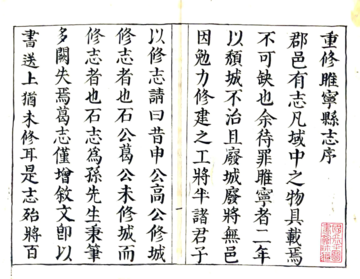 重修睢寧縣志序
郡邑有志凡域中之物具載焉
不可缺也余待罪睢寧者二年
以頹城不治且廢城廢將無邑
因勉力修建之工將半諸君子
以修志請曰昔申公高公修城
修志者也石公葛公未修城而
修志者也石志為孫先生秉筆
多闕失焉葛志僅增敘文卽以
書送上猶未修耳是志殆將百